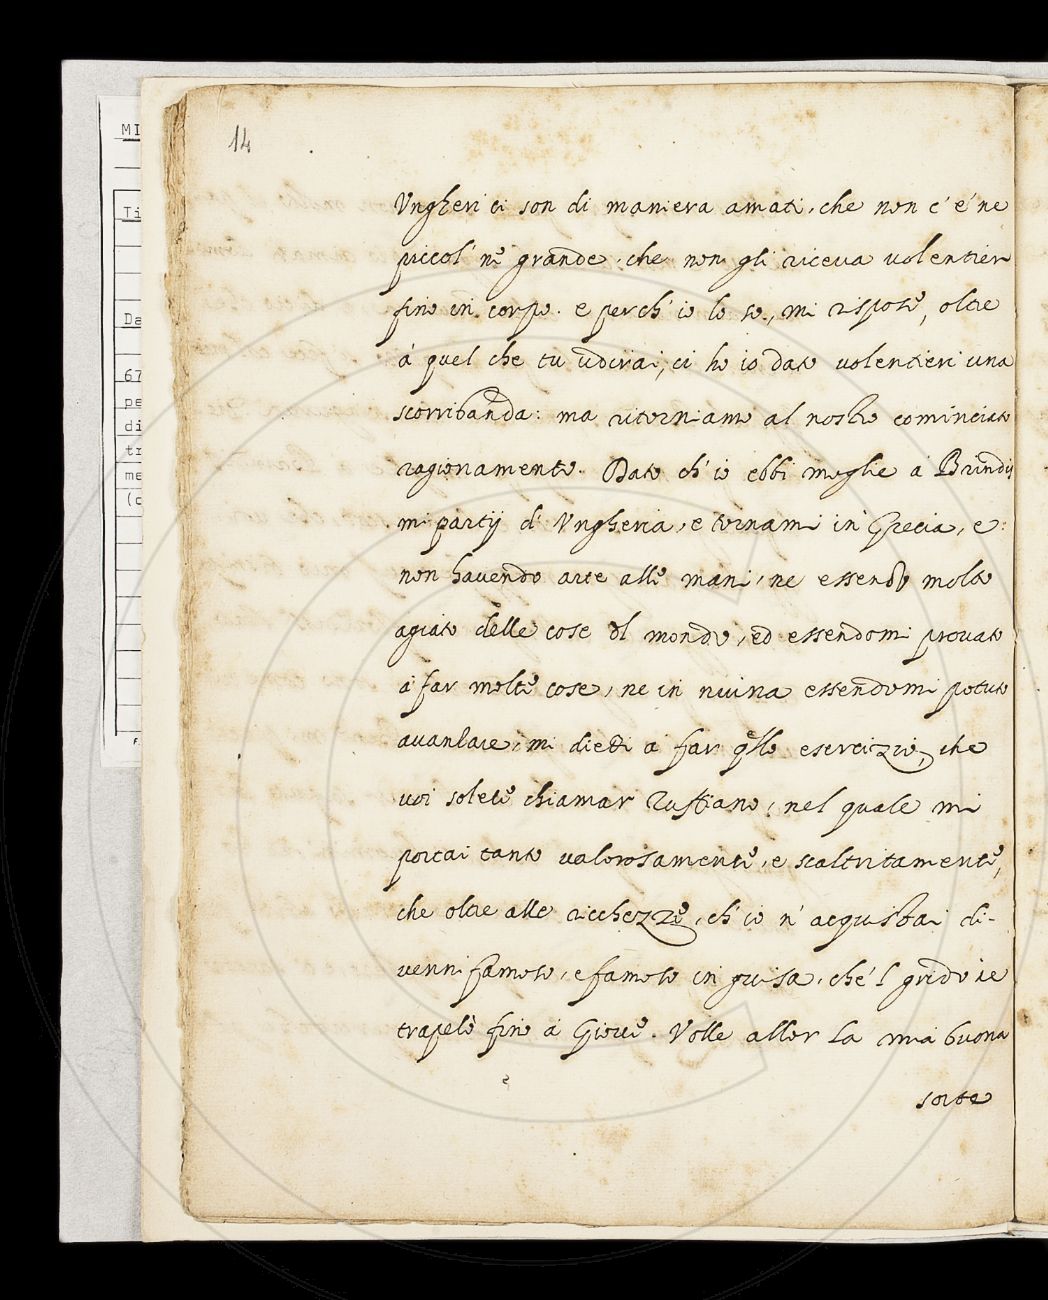 14
MI
Ti
Da
67
pe
di
tr
me
(c
Vngheri ci son di maniera amati, che non c'é ne
piccol' nè grande, che non gli riceva volentier
fino in corpo. e perch' io lo so, mi rispose, oltre
á quel che tu udirai, ci ho io dato volentieri una
scorribanda: ma ritorniamo al nostro cominciato
ragionamento. Dato ch' io ebbi moglie a Brindisi
mi partij d' Vngheria, e tornami in Grecia, e
non havendo arte alle mani, ne essendo molto
agiato delle cose dl mondo, ed essendomi provato
á far molte cose, ne in niuna essendomi potuto
avanzare, mi diedi á far qllo esercizio, che
voi solete chiamar Ruffiano, nel quale mi
portai tanto valorosamente, e scaltritamente,
che oltre alle ricchezze, ch' io n' acquistai di-
venni famoso, e famoso in guisa, che'l grido ne
trapelò fino á Giove. Volle allor la mia buona
sorte